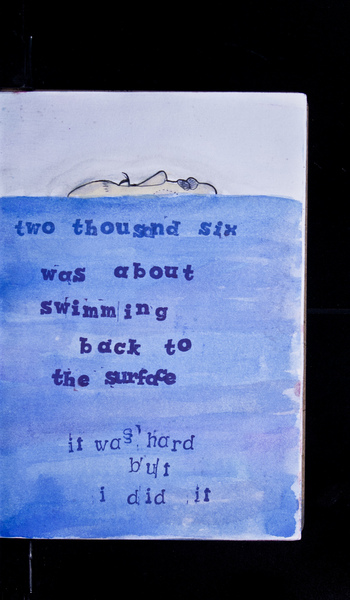 two thousand six
was about
swimming
back to
the surface
it was hard
but
i did it